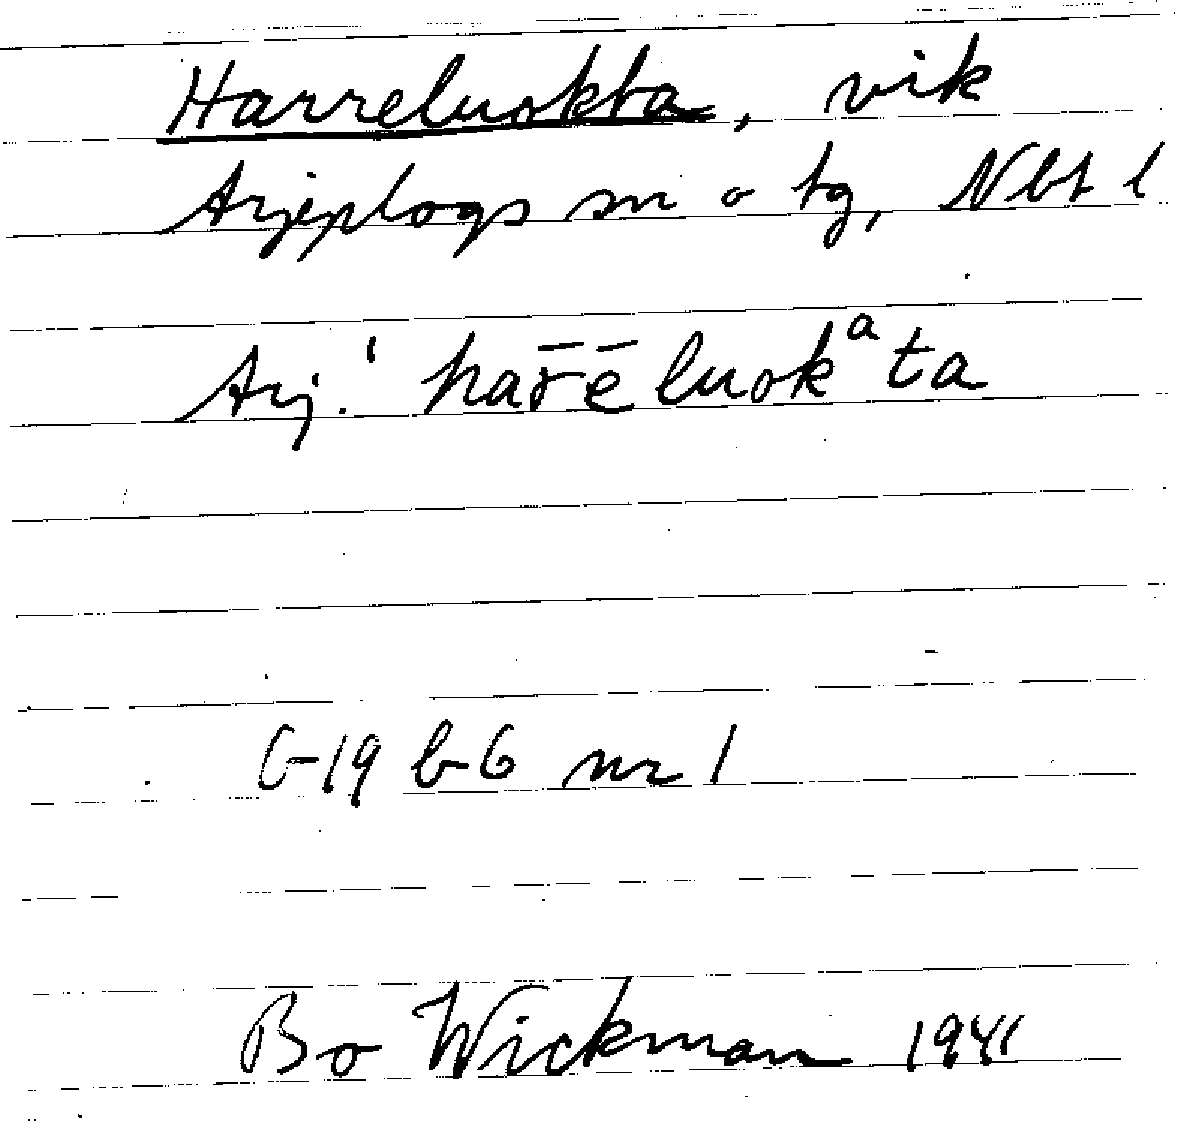 Harreluokta, vik
Arjeplogs sn o tg, Nbt l
Arj. ˈhar̄ēluokᵃta
G 19 b 6 nr 1
Bo Wickman 1941